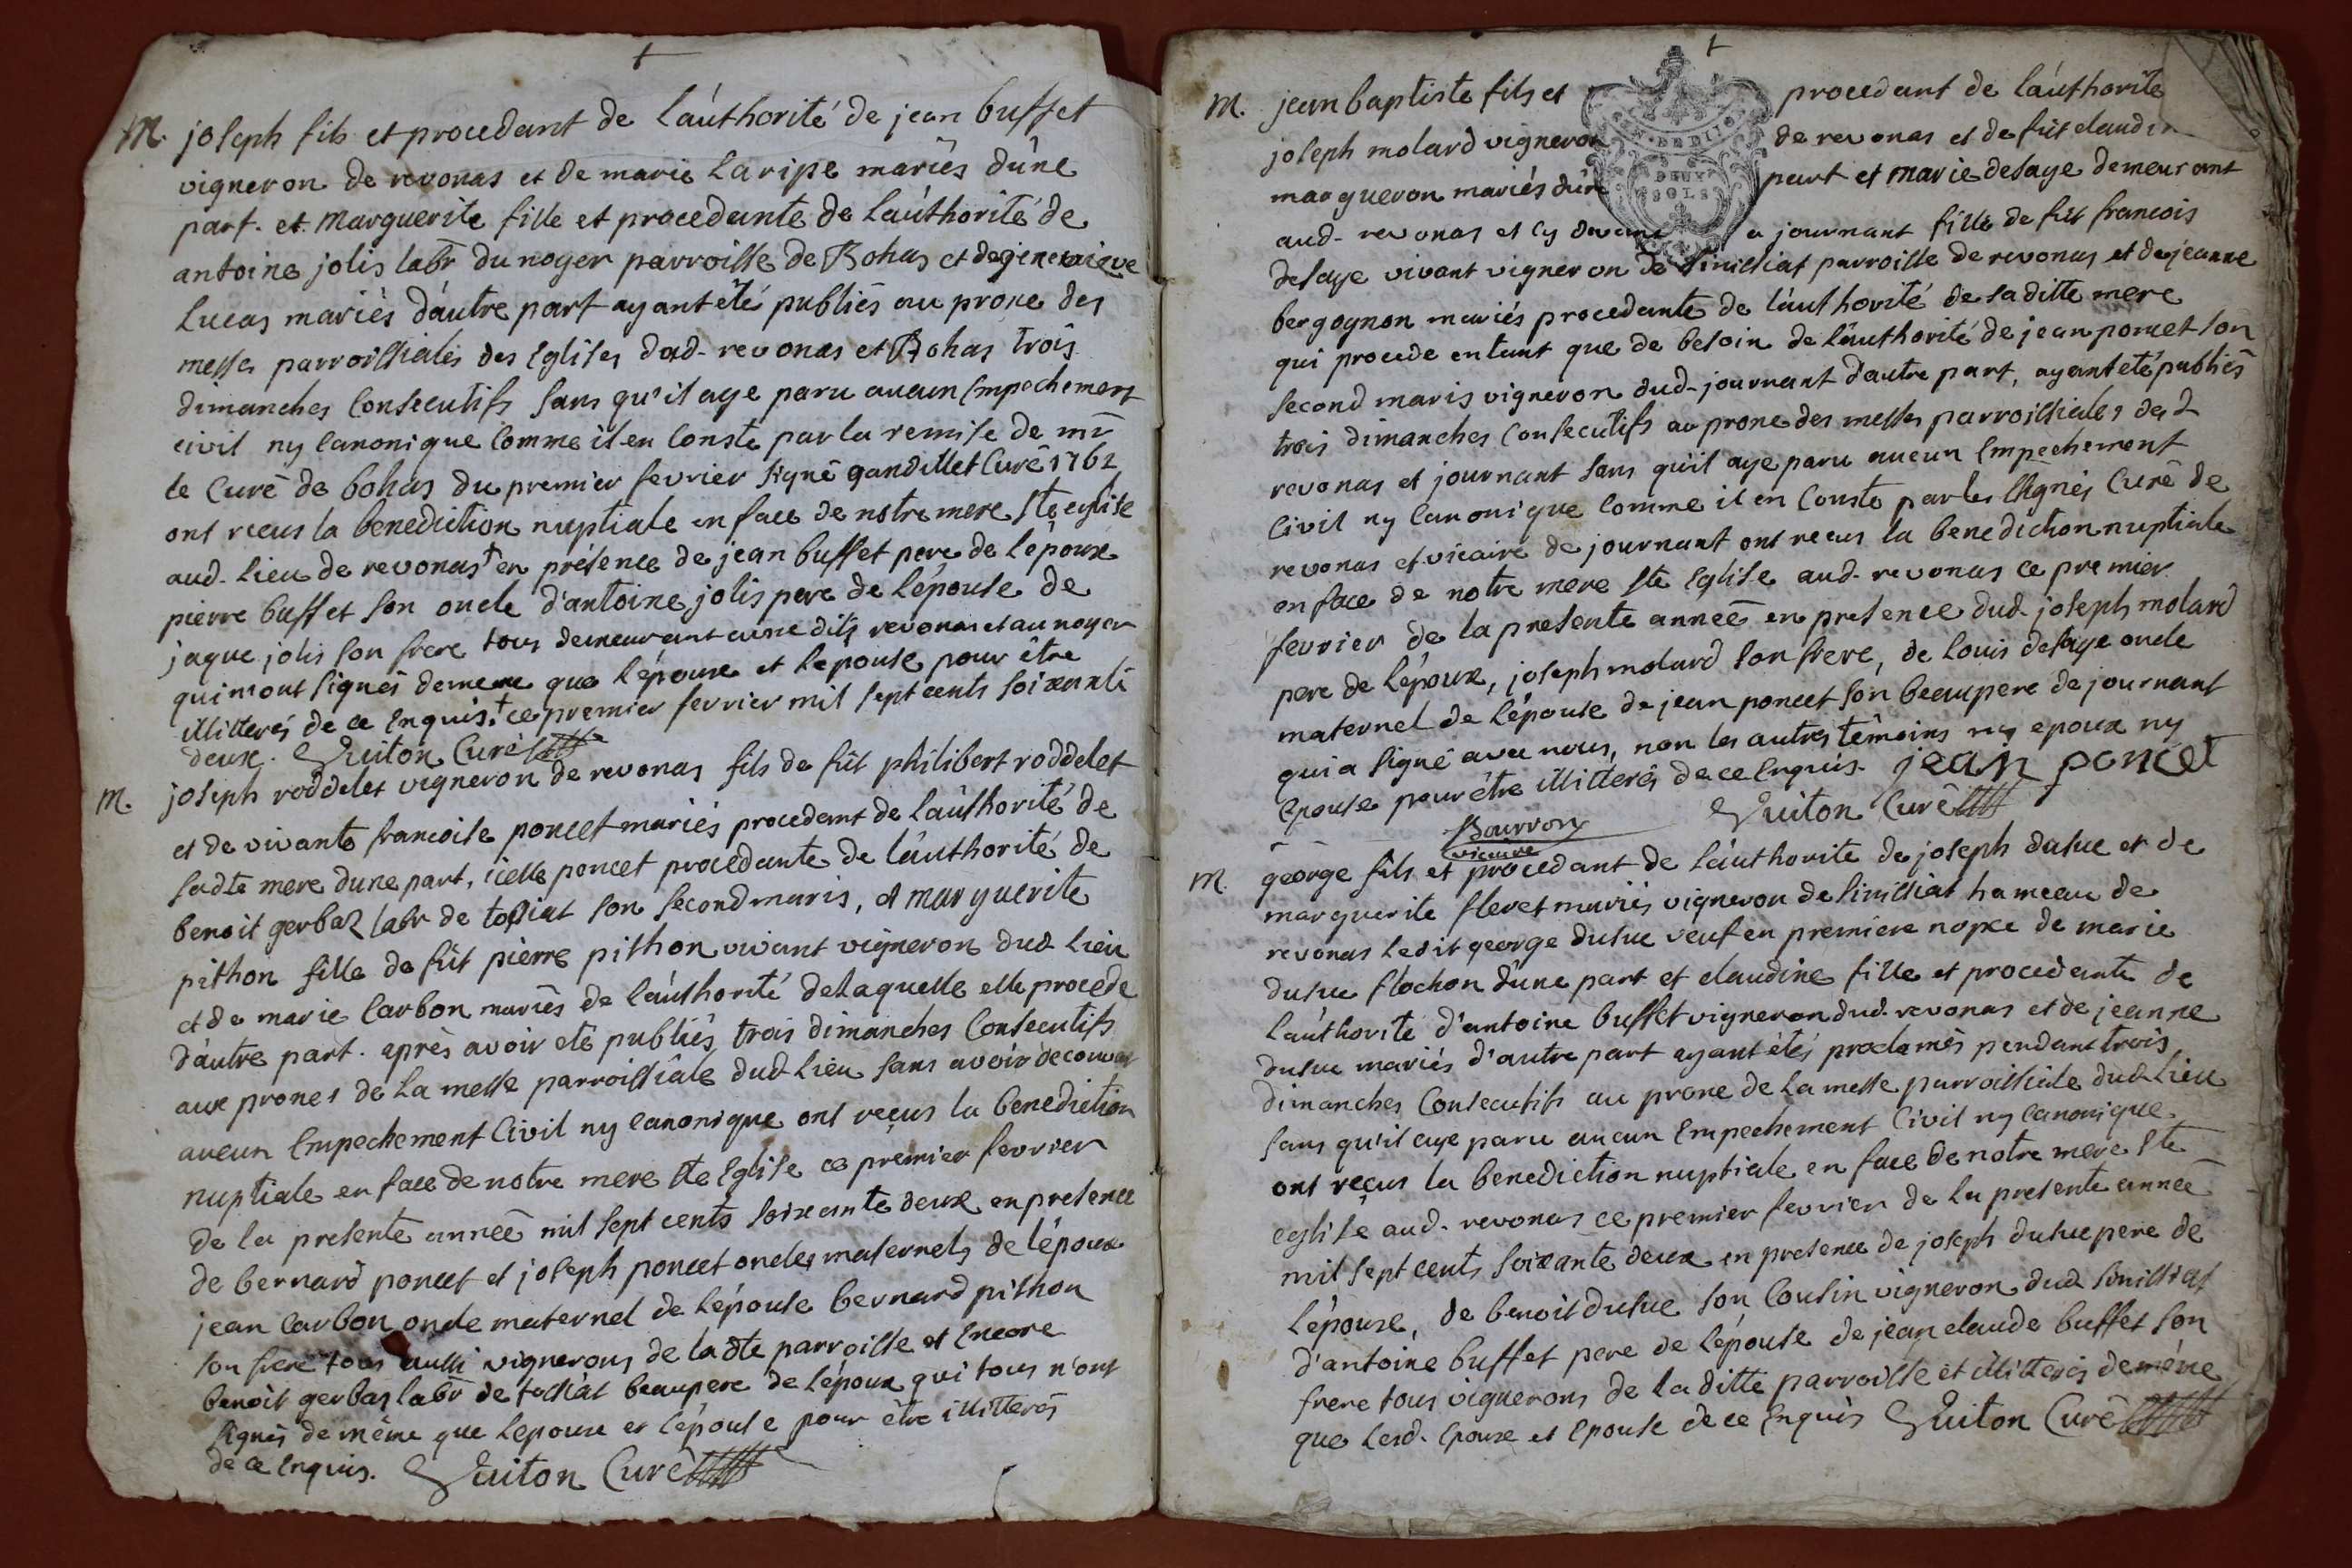 M. joseph fils et procedant de láuthorité de jean buffet
vigneron de revonas et de marie Laripe mariés dúne
part. et. Marguerite fille et procedante de láuthorité de
antoine jolis labr du noyer parroisse de Bohas et de genevieve
Lucas mariés dáutre part ayant été publiés au prone des
messes parroissiales des Eglises dud. revonas et Bohas trois
dimanches Consecutifs sans qu'il aye paru aucun Empechement
civil ny Canonique Comme il en Conste par la remise de mr
le Curé de bohas du premier fevrier signé gandillet Curé 1762
ont recus la benediction nuptiale en face de notre mere Ste eglise
aud. Lieu de revonas + en présence de jean buffet pere de l'époux
pierre buffet son oncle d'antoine jolis pere de lépouse de
jaque jolis son frere tous demeurant revonas et au noyer
qui n'ont signés de meme que lépoux et lepouse pour être
illitterés de ce Enquis. + ce premier fevrier mil sept cents soixante
deux. Guiton Curé
M. joseph roddelet vigneron de revonas fils de fût philibert roddelet
et de vivante francoise poncet mariés procedant de láuthorité de
sadte mere dune part, icelle poncet procedante de láuthorité de
benoit gerbaz labr de tossiat son second maris, et marguerite
pithon fille de fût pierre pithon vivant vigneron dud Lieu
et de marie Carbon mariés de láuthorité de laquelle elle procede
dáutre part. après avoir eté publiés trois dimanches Consecutifs
aux prones de La messe parroissiale dud Lieu sans avoir decouvert
aucun Empechement Civil ny Canonique ont reçus la benediction
nuptiale en face de notre mere Ste Eglise ce premier fevrier
de la presente année mil sept cents soixante deux en presence
de bernard poncet et joseph poncet oncles maternels de lépoux
jean Carbon oncle maternel de lépouse bernard pithon
son frere tous aussi vignerons de ladte parroisse et Encore
benoit gerbaz labr de tossiat beaupere de lépoux qui tous n'ont
signés de même que Lepoux et lépouse pour être illitterés
de ce Enquis. Guiton Curé
M. jean baptiste fils et procedant de láuthorité
joseph molard vigneron de revonas et de fût claudi
margueron mariés dúne part et Marie desaye demeurant
aud. revonas et cy devant a journant fille de fût francois
desaye vivant vigneron de Sinissiat parroisse de revonas et de jeanne
bergognon mariés procedante de láuthorité de saditte mere
qui procede entant que de besoin de láuthorité de jean poncet son
second maris vigneron dud. journant dautre part, ayant eté publiés
trois dimanches Consecutifs au prone des messes parroissiales de
revonas et journant sans qu'il aye paru aucun Empechement
Civil ny Canonique Comme il en Conste par les signés Curé de
revonas et vicaire de journant ont recus la benediction nuptiale
en face de notre mere Ste Eglise aud. revonas ce premier
fevrier de la presente année en presence dud. joseph molard
pere de lépoux, joseph molard son frere, de Louis desaye oncle
maternel de lépouse de jean poncet son beaupere de journant
qui a signé avec nous, non les autres témoins ny epoux ny
Epouse pour être illitterés de ce Enquis. jean poncet
Bourron
vicaire
Guiton Curé
M. george fils et procedant de láuthorite de joseph dusuc et de
marguerite fleret mariés vigneron de Sinissiat hameau de
revonas ledit george dusuc veuf en premiere nopce de marie
dusuc flochon dúne part et claudine fille et procedante de
láuthorité d'antoine buffet vigneron dud. revonas et de jeanne
dusuc mariés d'autre part ayant étés proclamés pendant trois
dimanches Consecutifs au prone de La messe parroissiale dud Lieu
sans qu'il aye paru aucun Empechement Civil ny Canonique
ont reçus la benediction nuptiale en face de notre mere Ste
eglise aud. revonas ce premier fevrier de la presente année
mil sept cents soixante deux en presence de joseph dusuc pere de
l'époux, de benoit dusuc son Cousin vigneron dud Sinissiat
d'antoine buffet pere de lépouse de jean claude buffet son
frere tous vignerons de la ditte parroisse et illitterés de même
que Lesd. Epoux et Epouse de ce Enquis Guiton Curé